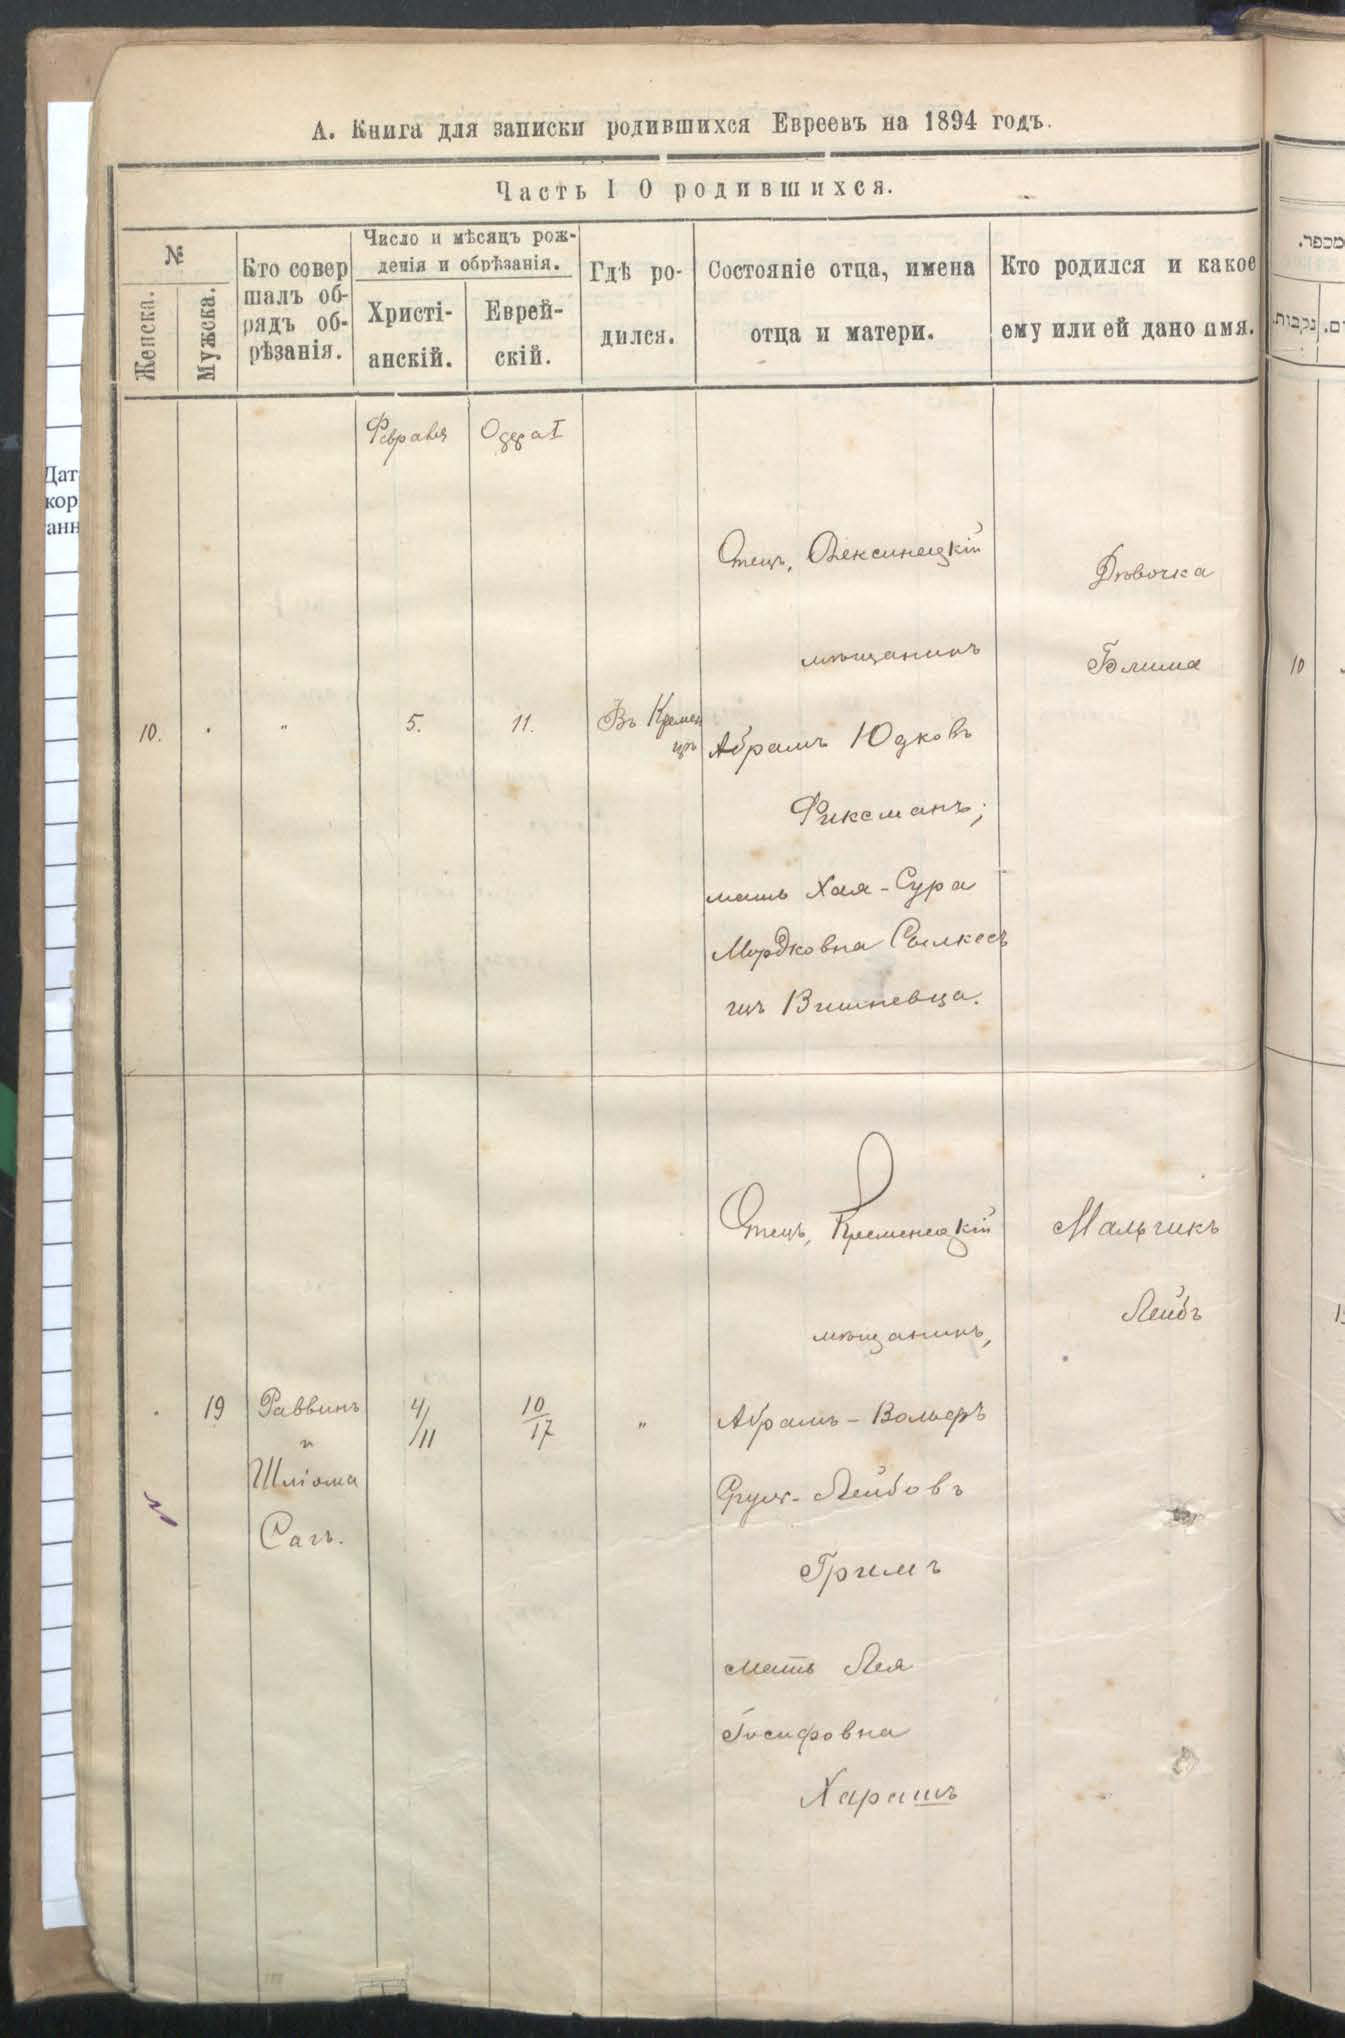 А. Книга для записки родившихся Евреевъ на 1894 годъ.
Часть I О родившихся.
№
Женска.
Мужска.
Кто совер
шалъ об-
рядъ об-
рѣзанія.
Число и мѣсяцъ рож-
денія и обрѣзанія.
Христі-
анскій.
Еврей-
скій.
Гдѣ ро-
дился.
Состояніе отца, имена
отца и матери.
Кто родился и какое
ему или ей дано имя.
Февраля
Одера I
10.
"
5.
11.
Въ Кремен
цѣ
Отецъ, Олексинецкій
мѣщанинъ
Абрамъ Юдковъ
Фиксманъ;
мать Хая-Сура
Мордковна
изъ Вишневца.
Дѣвочка
Блима
19
Раввинъ
и
Шліома
Сагъ.
4/11
10/17
"
Отецъ, Кременецкій
мѣщанинъ,
Абрамъ-Вольфъ
Лейбовъ
Гримъ
мать Лея
Іосифовна
Харашъ
Мальчикъ
Лейбъ
Дат
кор
анн
מספר.
נקבות.
10